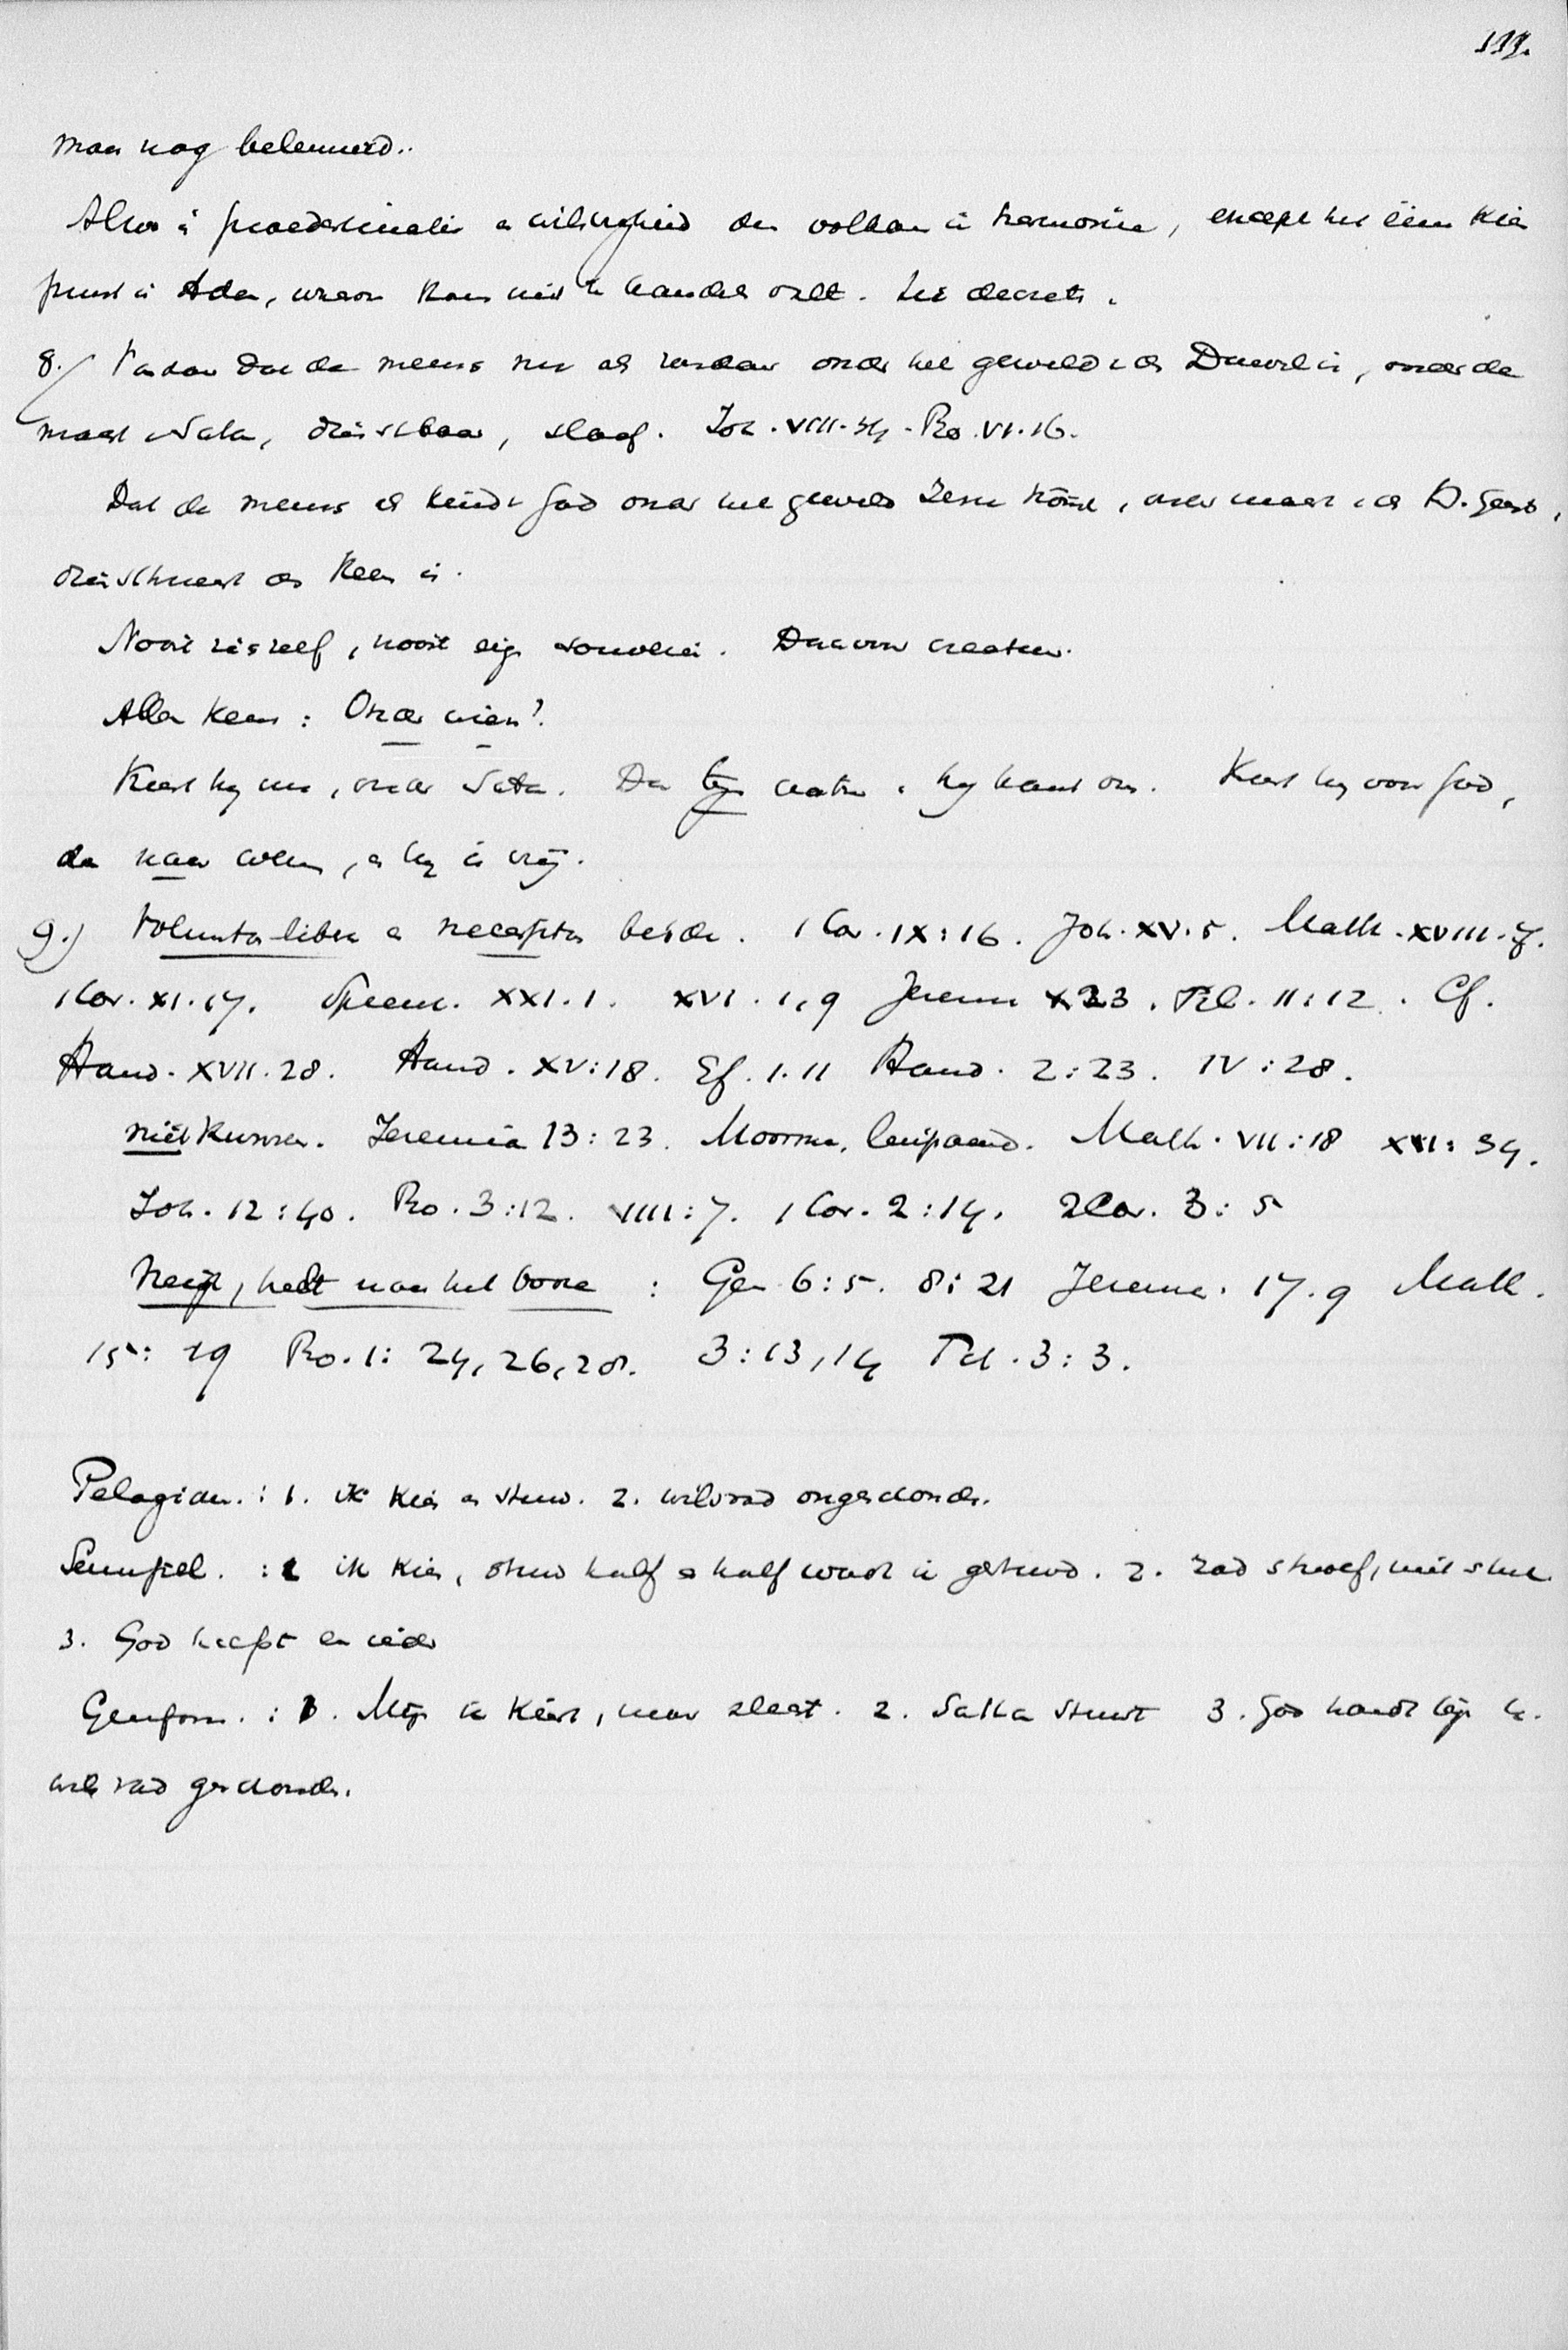 199.
maar nog belemmerd..
Alzoo is praedestinatie en willigheid dus volkomen in harmonie, except het ééne kies
punt in Adam, waarin kans niet te handelen valt. Zie decreta.
8./ Vandaar dat de mens nu als zondaar onder het geweld v.d. Duivel is, onder de
macht v Satan, dienstbaar, slaaf. Joh. VIII. 34 - Ro. VI. 16.
Dat de mens als kind v God onder het geweld Jesu komt, onder macht v.d. H. Geest,
dienstknecht des Heren is.
Nooit zichzelf, nooit eigen souverein. Daarvoor creatuur.
Alleen keus: Onder wien?
Kiest hij nu, onder Satan. Dan tegen natuur, hij kant om. Kiest hij voor God,
dan naar wezen, en hij is vrij.
9.) Voluntas libera en necessitas beide. 1 Cor. IX:16. Joh. XV. 5. Matth. XVIII. 7.
1 Cor. XI. 19. Spreuk. XXI. 1. XVI. 1, 9 Jeremia X 23. Fil. II:12. Cf.
Hand. XVII. 28. Hand. XV:18. Ef. 1. 11 Hand. 2:23. IV:28.
niet kunnen. Jeremia 13:23. Moorman, luipaard. Matth. VII:18 XII:34.
Joh. 12:40. Ro. 3:12. VIII:7. 1 Cor. 2:14. 2 Cor. 3:5
Neigt, helt naar het boze : Gen 6:5. 8:21 Jeremia. 17. 9 Matth.
15:19 Ro. 1: 24, 26, 28. 3:13, 14 Tit. 3:3.
Pelagian. : 1. ik kies en stuur. 2. wilsrad ongeschonden.
Semipel. : 1 ik kies, stuur half en half word ik gestuurd. 2. rad stroef, niet stuk
3. God helpt een ieder
Gereform. : 1. Mijn ik kiest, maar slecht. 2. Satan stuurt 3. God houdt tegen h.
wils rad geschonden.